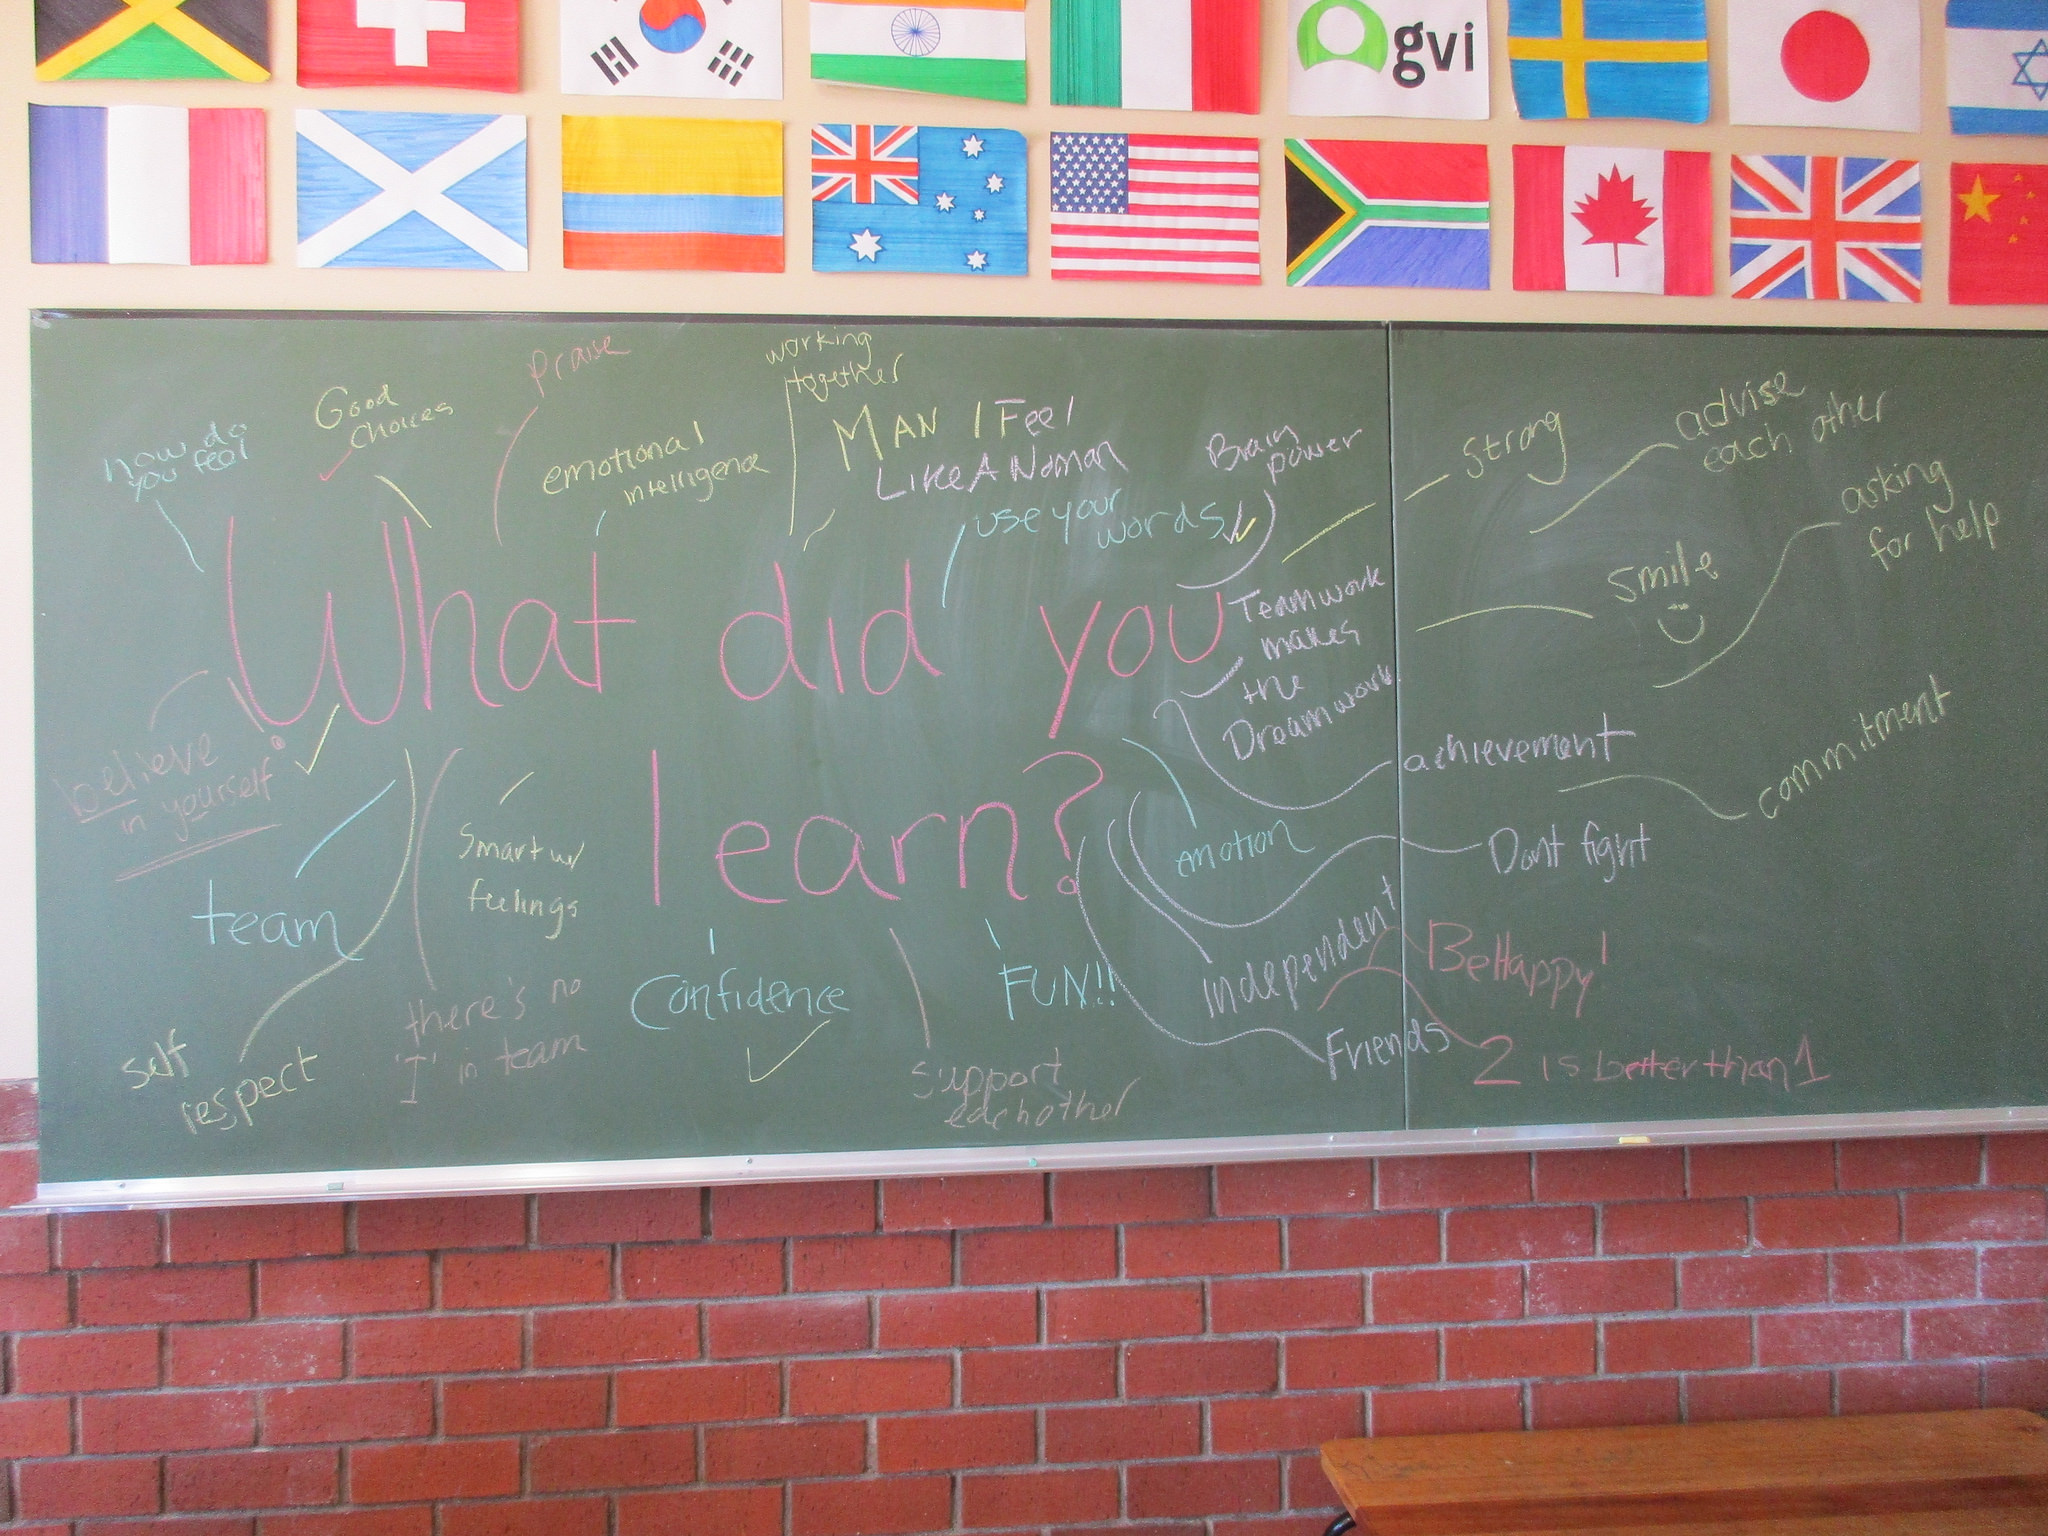 gvi
How do
you feel
Good
Choices
Praise
emotional
intelligence
working
together
MAN I Feel
Like A Woman
use your
words
Brain
power
Strong
advise
each other
asking
for help
Smile
What did you
learn?
Teamwork
makes
the
Dreamwork
believe
in yourself
team
Smart w/
feelings
achievement
commitment
emotion
Dont fight
Independent
Be Happy!
self
respect
there's no
'I' in team
Confidence
support
each other
FUN!!
Friends
2 is better than 1